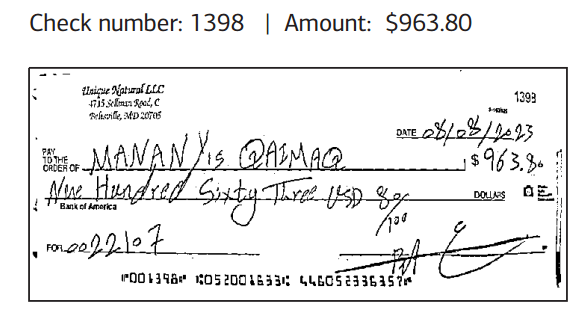 Check number: 1398 | Amount: $963.80
Unique Natural LLC
4715 Sellman Road, C
Beltsville, MD 20705
1398
DATE 08/08/2023
PAY TO THE ORDER OF MANANYis QAIMAQ $963.80
Nine Hundred Sixty Three USD 80/100 DOLLARS
Bank of America
FOR 0022107
⑈001398⑈ ⑆052001633⑆ 446052336357⑈